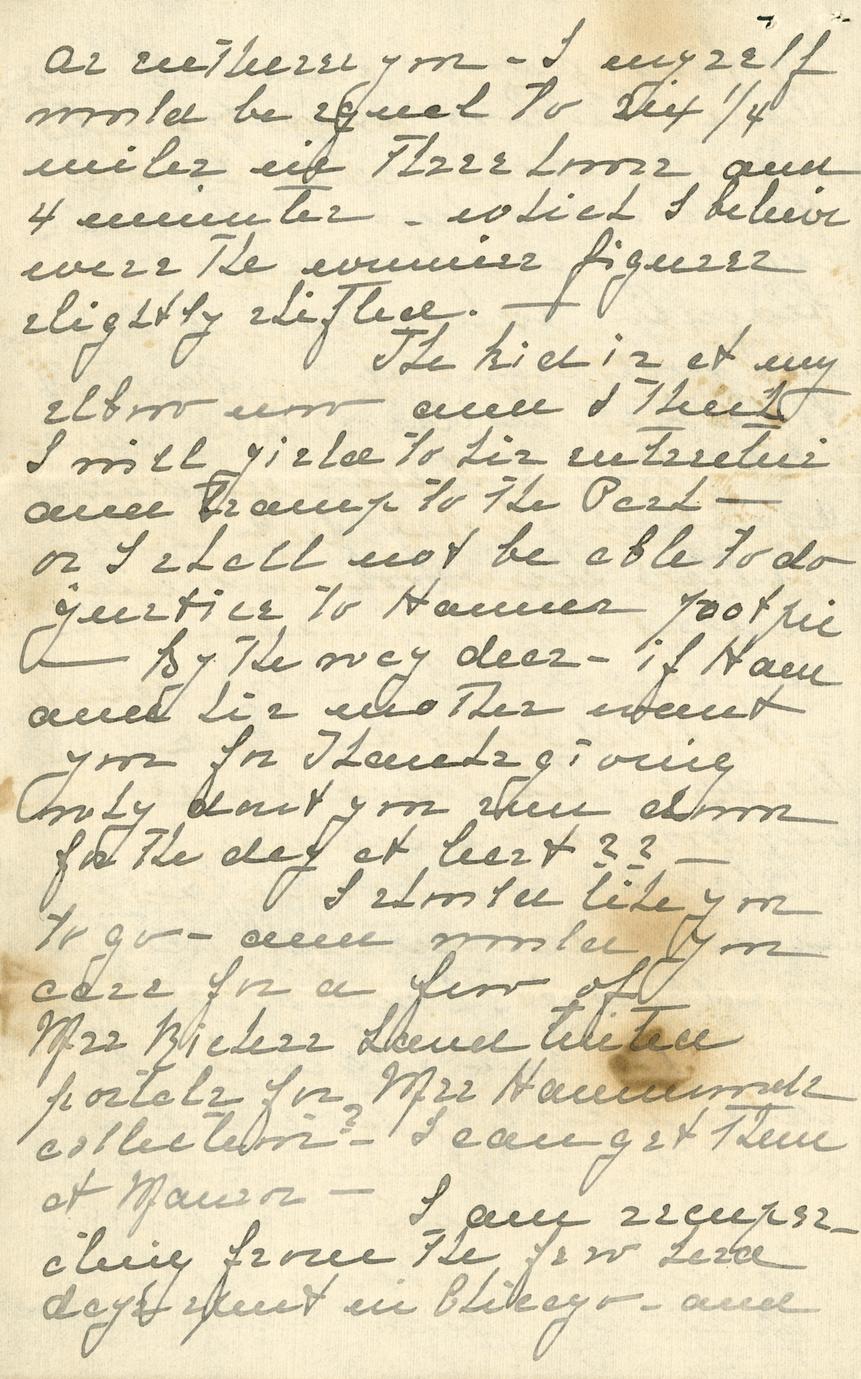 you - I myself
would be equal to six 1/4
miles in three hours and
4 minutes - which I believe
were the figures
slightly shifted. —
The kid is at my
elbow now and I think
I will yield to his
and tramp to the Park —
or I shall not be able to do
justice to
— By the way dear - if Ham
and his mother want
you for Thanksgiving
why dont you run down
for the day at least ?? —
I should like you
to go - and would you
care for a few of
Mrs hand tinted
postals for Mrs
collection? - I can get them
at —
I am recuper-
ating from the few hard
days spent in Chicago - and